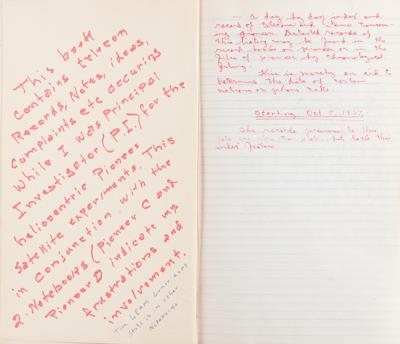 This book
contains telecon
Records, Notes, ideas,
Complaints etc occuring
While I was Principal
Investigator (P.I.) for the
heliocentric Pioneer
Satellite experiments. This
in conjunction with the
2 Notebooks (Pioneer C and
Pioneer D indicate my
frustrations and
involvement.
The LEAM
Stuff is in other
Notebooks
— A day by day index and
record of telecons and items concern-
ing pioneer. Detailed records of
this history may be found in the
record books on pioneer or in the
files of pioneer by chronological
filing.
This is purely an aid to
determine the date of certain
notations or phone calls.
Starting Oct 5, 1967
The records previous to this
but lack this
index feature.